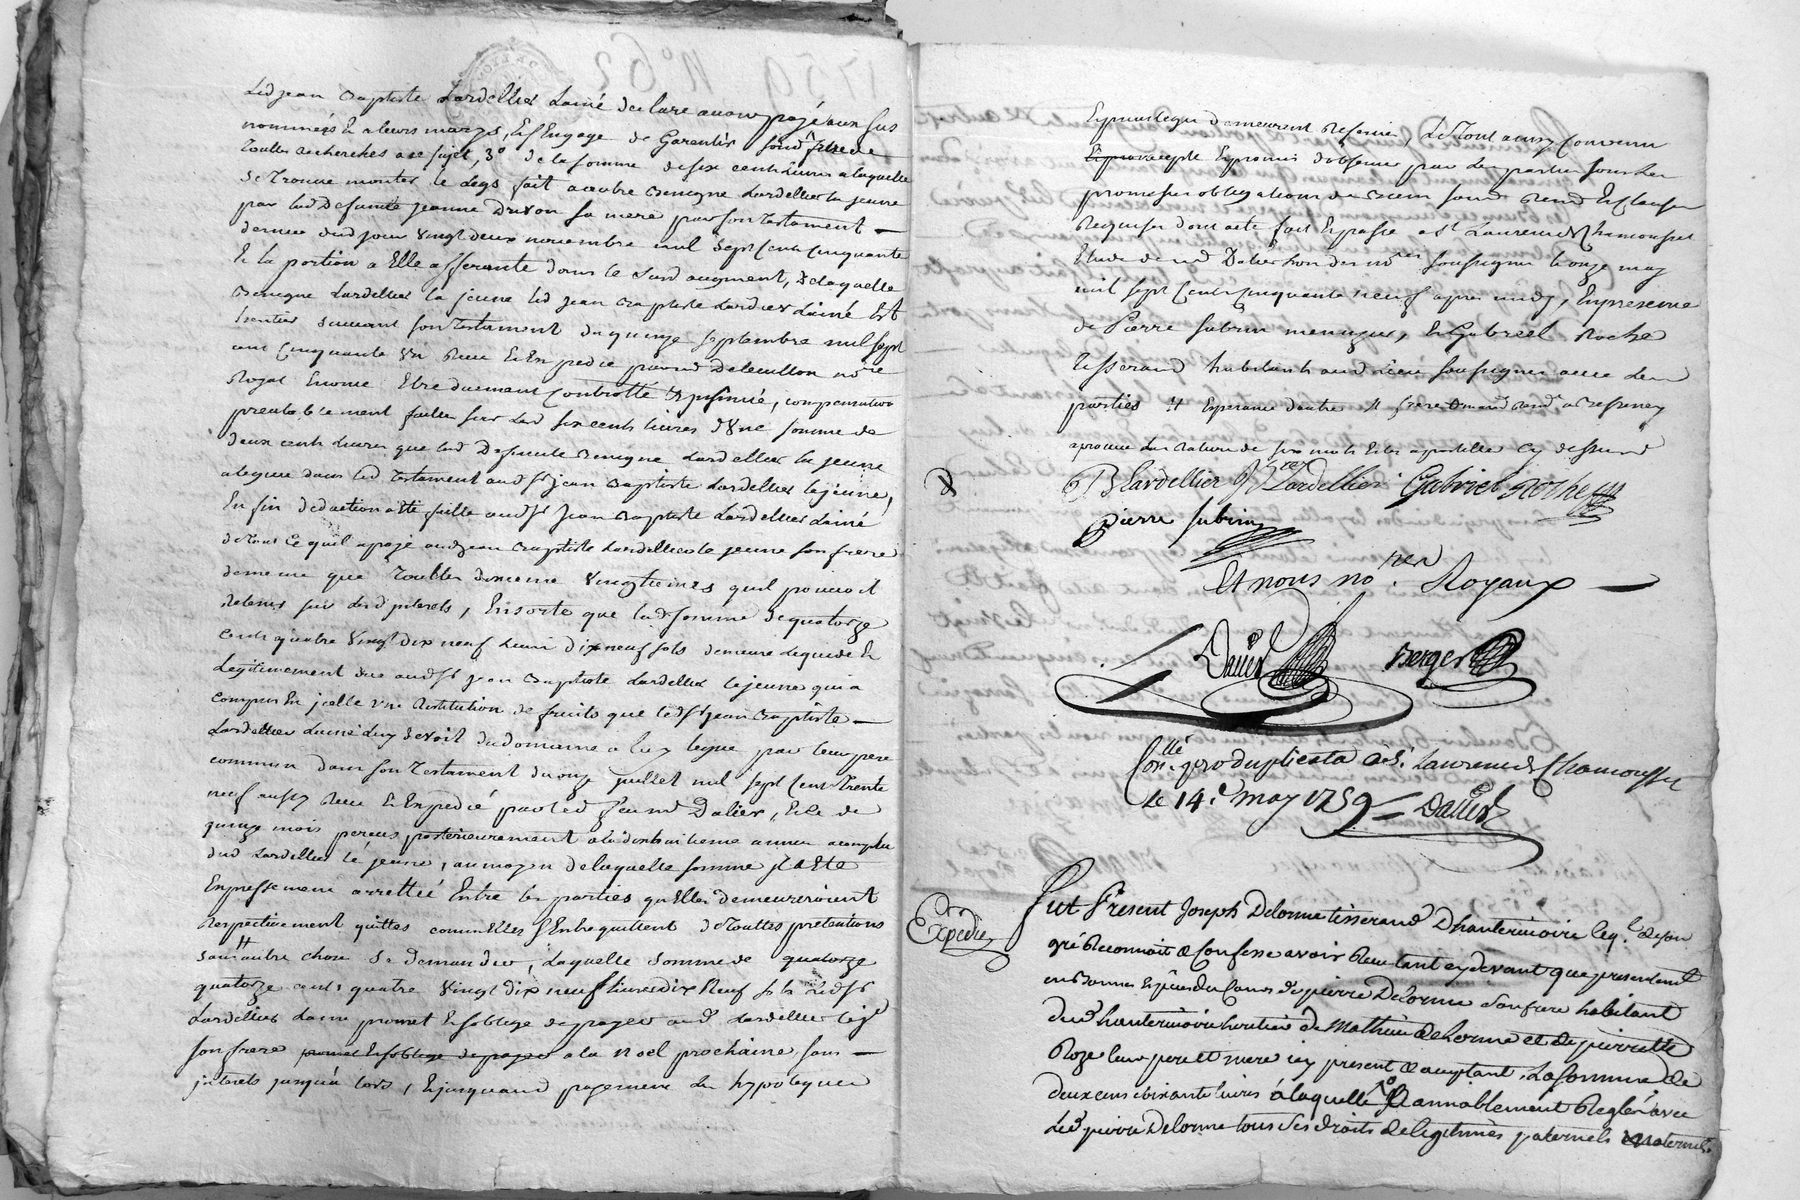 Led jean Baptiste Lardellier Lainé declare avoir payé aux sus
nommées & a leurs marys, & s'Engage de Garentir sond frere de
Touttes recherches a ce sujet, 3º de la somme de six cents livres a laquelle
Se Trouve monter le Legs fait a Benigne Lardellier la jeune
par lad Defunte jeanne Drivon sa mere par son Testament
dernier dud jour vingt deux novembre mil sept cents cinquante
& la portion a Elle afferante dans le susd augment, de laquelle
Benigne Lardellier la jeune led jean Baptiste Lardellier Lainé Est
heritier suivant son Testament du quinze septembre mil sept
cent cinquante un Receu & Expedié par md notre
Royal Enoncé Etre duement Controllé & insinué, compensation
prealablement faitte sur lesd six cents livres d'une somme de
deux cents livres que lad Defunte Benigne Lardellier la jeune
a legué dans led Testament aud Sr jean Baptiste Lardellier lejeune,
Enfin deduction a Eté faitte aud Sr jean Baptiste Lardellier Lainé
de Tout ce quil a payé aud jean Baptiste Lardellier le jeune son frere
de meme que Touttes dixieme vingtiemes quil pouvoit
Retenir sur lesd interets, Ensorte que lad somme de quatorze
cents quatre vingt dix neuf livres dix neuf sols demeure liquide &
Legitimement due aud Sr jean Baptiste Lardellier lejeune qui a
compris En icelle une Restitution de fruits que led Sr jean Baptiste
Lardellier Lainé Luy devoit du domaine a luy legué par leur pere
commun dans son Testament du onze juillet mil sept cent Trente
neuf aussy Receu & Expedié par led md Dalier, & ce de
quinze mois perçus posterieurement a la dixhuitieme année accomplie
dud Lardellier le jeune, au moyen de laquelle somme il a Eté
Expressement arretté Entre les parties qu'Elles demeureroient
Respectivement quittes comme Elles S'Entrequittent de Touttes pretentions
sans autre chose Se demander, Laquelle somme de quatorze
quatorze cents quatre vingt dix neuf livres dix Neuf sols Led Sr
Lardellier Lainé promet & s'oblige de payer aud Lardellier lejeune
son frere promet & s'oblige de payer a la Noel prochaine sans
interets jusqu'a lors, & jusqu'aud payement les hypoteques
& privileges demeurent Reservés, Le Tout ainsy convenu
accepté & promis d'observer par les parties sous les
promesses obligations de Biens soumd Renond & clauses
Requises dont acte fait & passé a St Laurent de Chamousset
Etude de md Dalier L'un des nores soussignés le onze may
mil sept cents cinquante neuf apres midy, En presence
de Pierre Subrin menuzier, & Gabriel Roche
Tisserand habitants aud Lieu soussignés avec les
parties
approuvé la Rature de six mots & les apostilles cy dessus
JB Lardellier JB Lardellier Gabriel Roche
pierre Subrin
Et nous nores. Royaux
Dalier Berger
Conllé. pro duplicata a St. Laurent de Chamousset
Le 14e. may 1759 Dalier
Expedié
Fut Present Joseph Delorme tisserand D'hauterivoire leql. de son
gré Reconnoit & Confesse avoir Reçu tant cy devant que presentement
en Bonnes Especes du Cours de pierre Delorme son frere habitant
dud hauterivoire heritier de Mathieu de Lorme et de pierrette
Roze leur pere et mere icy present & acceptant, la somme de
deux cens soixante livres a laquelle ils ont amiablement Reglé avec
led pierre Delorme tous ses droits de legitimes paternels maternels